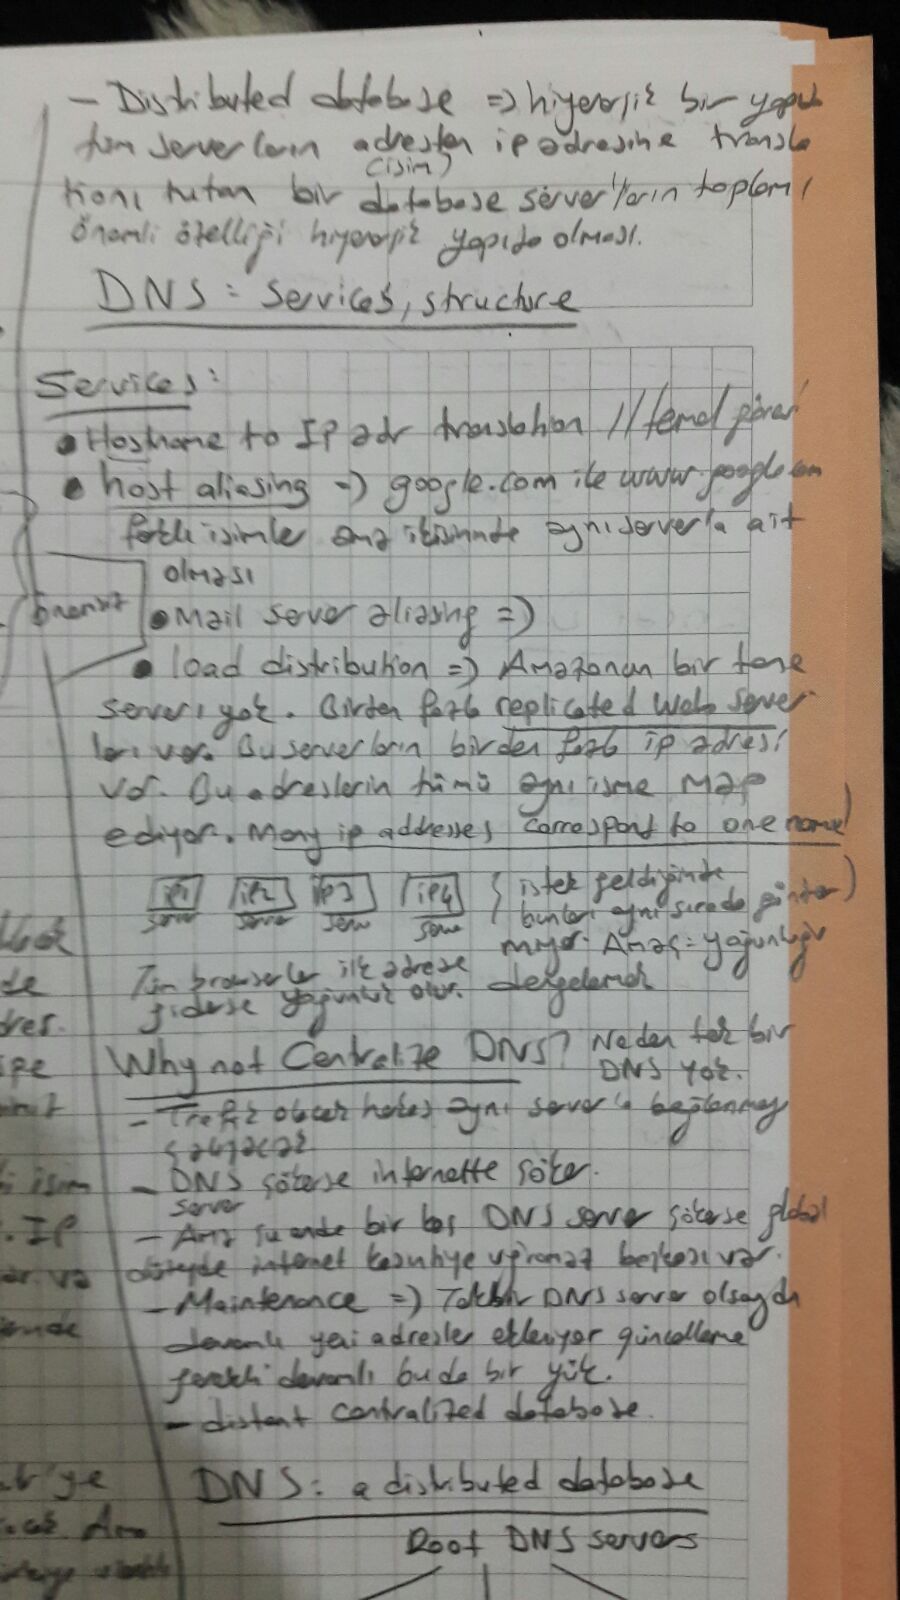 - Distributed database => hiyerarşik bir yapıda
tüm serverların adresten ip adresine transla
(isim)
tionı tutan bir database server'ların toplamı
önemli özelliği hiyerarşik yapıda olması.
DNS: Services, structure
Services:
• Hostname to IP adr translation // temel görev
• host aliasing => google.com ile www.google.com
farklı isimler ama ikisininde aynı server'a ait
olması
önemsiz
• Mail server aliasing =>
• load distribution => Amazonun bir tane
serverı yok. Birden fazla replicated Web server
ları var. Bu serverların birden fazla ip adresi
var. Bu adreslerin tümü aynı isme map
ediyor. Many ip addresses correspond to one name)
ip1 ip2 ip3 ip4
serv server serv serv
istek geldiğinde
bunları aynı sırada gönder)
miyor. Amaç = yoğunluğu
dengelemek
Tüm browserlar ilk adrese
giderse yoğunluk olur.
Why not Centralize DNS? Neden tek bir
DNS yok.
- Trafik olacak herkes aynı server'a bağlanmay
çalışacak
- DNS çökerse internette çöker.
server
- Ama şu anda bir kaç DNS server çökerse global
düzeyde internet uğramaz başkası var.
- Maintenance => Tek bir DNS server olsaydı
devamlı yeni adresler ekleniyor güncelleme
gerekli devamlı bu da bir yük.
- distant centralized database.
DNS: a distributed database
Root DNS servers
de
dres.
isim
. IP